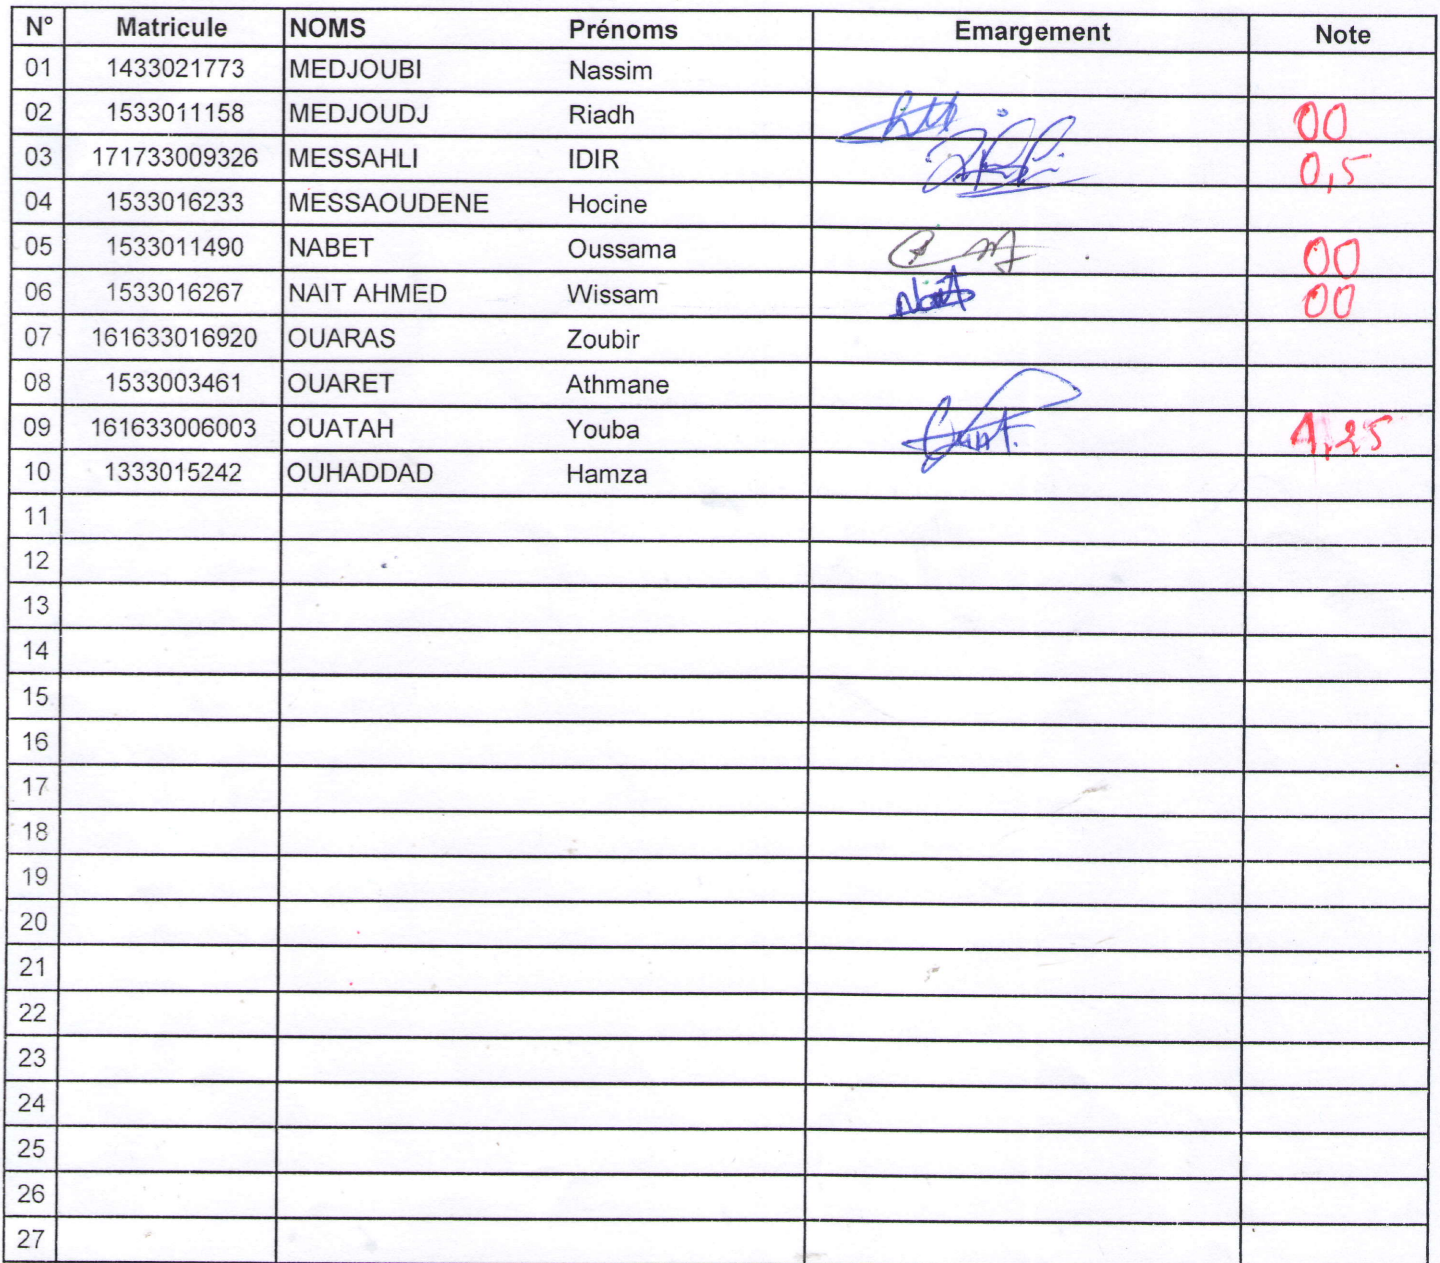 N° Matricule NOMS Prénoms Emargement Note
01 1433021773 MEDJOUBI Nassim
02 1533011158 MEDJOUDJ Riadh 00
03 171733009326 MESSAHLI IDIR 0,5
04 1533016233 MESSAOUDENE Hocine
05 1533011490 NABET Oussama 00
06 1533016267 NAIT AHMED Wissam 00
07 161633016920 OUARAS Zoubir
08 1533003461 OUARET Athmane
09 161633006003 OUATAH Youba
10 1333015242 OUHADDAD Hamza
11
12
13
14
15
16
17
18
19
20
21
22
23
24
25
26
27